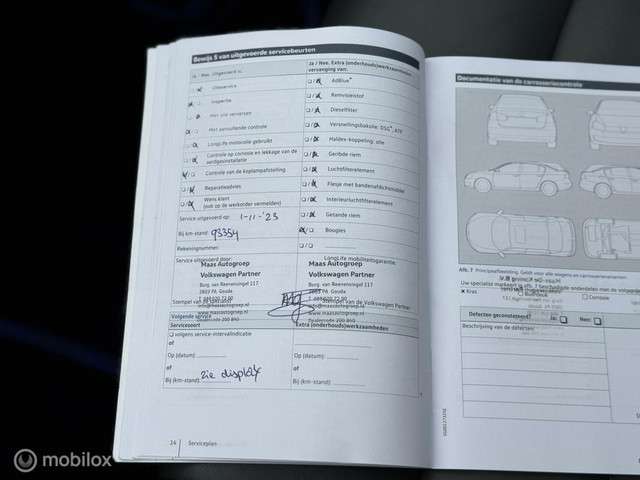 Bewijs 5 van uitgevoerde servicebeurten
Ja / Nee. Uitgevoerd is:
Olieservice
Inspectie
Met olie verversen
Met aanvullende controle
LongLife motorolie gebruikt
Controle op corrosie en lekkage van de
aardgasinstallatie
Controle van de koplampafstelling
Reparatieadvies
Wens klant
(mits op de werkorder vermelden)
Service uitgevoerd op: 1-11-'23
Bij km-stand: 93354
Rekeningnummer:
Service uitgevoerd door:
Maas Autogroep
Volkswagen Partner
Burg. van Reenensingel 117
2803 PA Gouda
Stempel van de specialist
Ja / Nee. Extra (onderhouds)werkzaamheden
vervanging van:
AdBlue®
Remvloeistof
Dieselfilter
Versnellingsbakolie: DSG®, ATF
Haldex-koppeling: olie
Geribde riem
Luchtfilterelement
Flesje met bandenafdichtmiddel
Interieurluchtfilterelement
Getande riem
Bougies
LongLife mobiliteitsgarantie.
Maas Autogroep
Volkswagen Partner
Burg. van Reenensingel 117
2803 PA Gouda
Stempel van de Volkswagen Partner
Volgende service
Servicesoort
volgens service-intervalindicatie
of
Op (datum):
of
Bij (km-stand): zie display
Extra (onderhouds)werkzaamheden
Op (datum):
of
Bij (km-stand):
24
Serviceplan
Documentatie van de carrosseriecontrole
Afb. 7 Principeafbeelding: Geldt voor alle wagens en carrosserievarianten
Uw specialist markeert in afb. 7 beschadigde onderdelen met de volgende
Kras
Corrosie
Defecten geconstateerd?
Ja:
Nee:
Beschrijving van de defecten:
mobilox